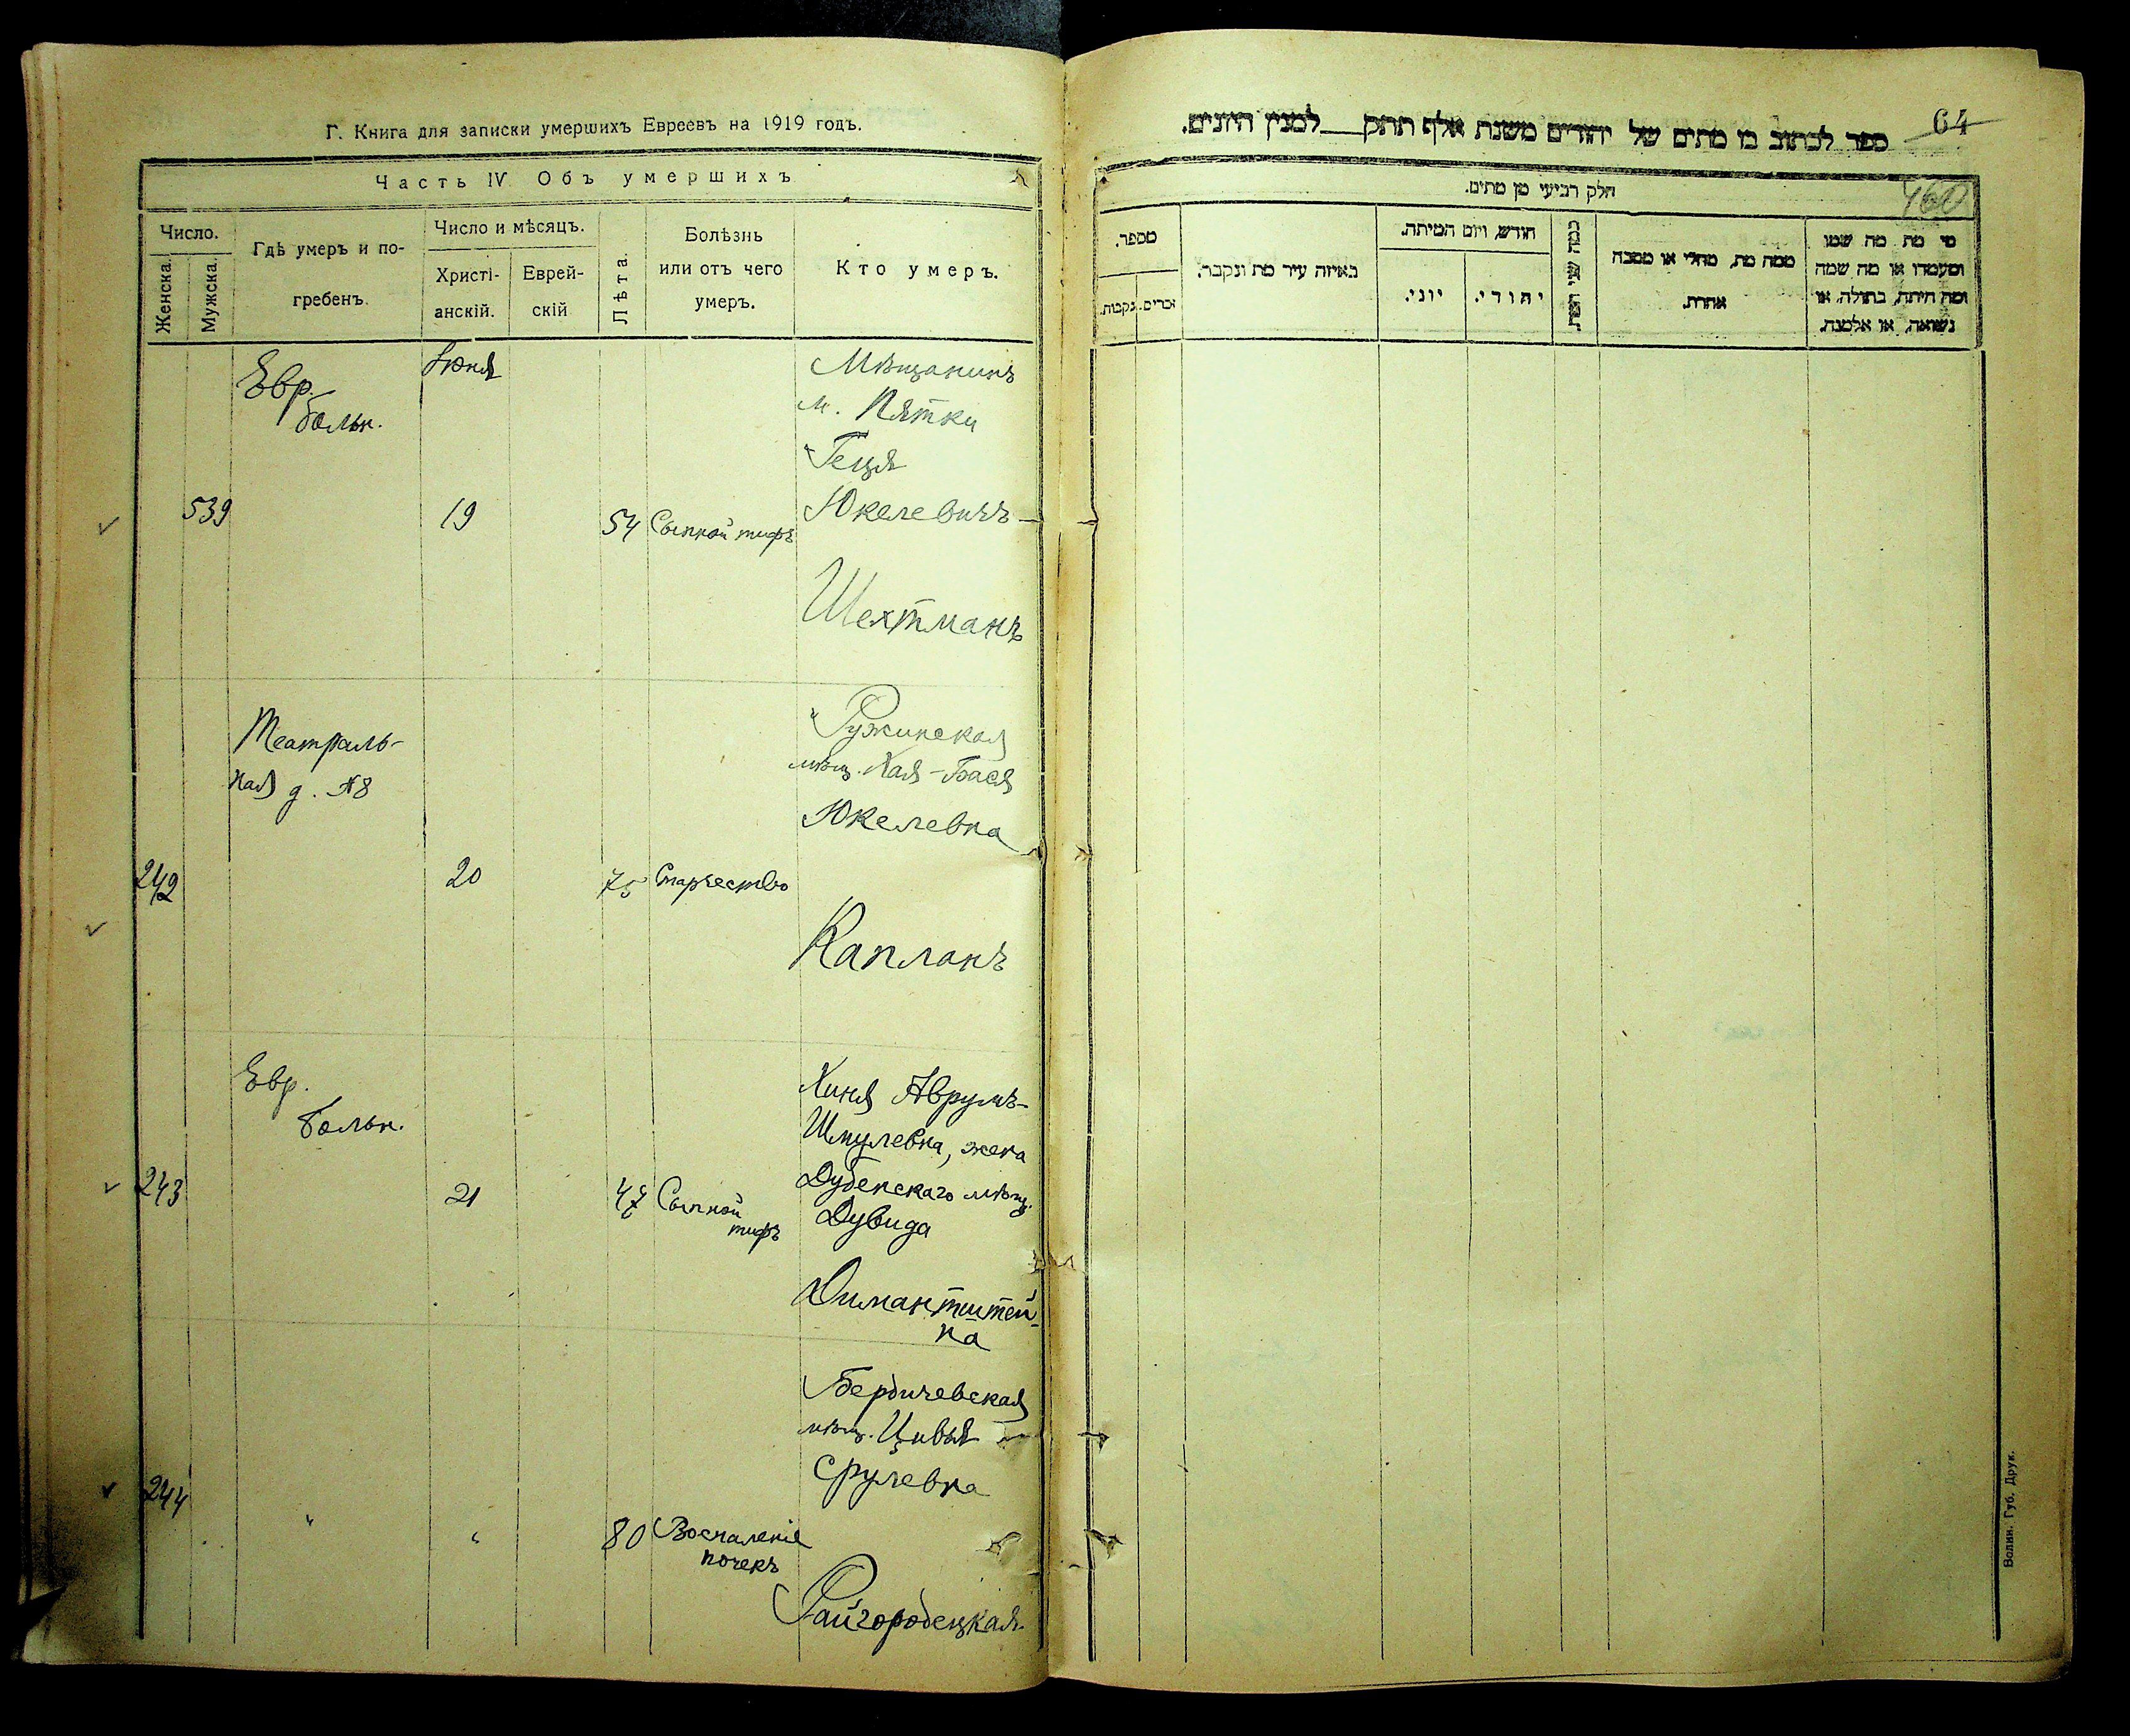 Г. Книга для записки умершихъ Евреевъ на 1919 годъ.
Часть IV Объ умершихъ
Число.
Женска.
Мужска.
Гдѣ умеръ и по-
гребенъ.
Число и мѣсяцъ.
Христі-
анскій.
Еврей-
скій
Лѣта.
Болѣзнь
или отъ чего
умеръ.
Кто умеръ.
Евр.
больн.
Іюня
539
19
54
Сыпной тифъ
Мѣщанинъ
м. Пятки
Геця
Юкелевичъ
Шехтманъ
Театраль-
ная д. №8
242
20
75
Старчество
Ружинская
мѣщ. Хая-Бася
Юкелевна
Капланъ
Евр.
больн.
243
21
47
Сыпной
тифъ
Хиня Аврумъ-
Шмулевна, жена
Дубенскаго мѣщ.
Дувида
Димантштей-
на
244
"
"
80
Воспаленіе
почекъ
Бердичевская
мѣщ. Цивья
Срулевна
Райгородецкая
64
460
ספר לכתוב בו מתים של יהודים משנת אלף תתק למנין היונים.
חלק רביעי מן מתים.
מספר.
זכרים.
נקבות.
באיזה עיר מת ונקבר.
חודש, ויום המיתה.
יוני.
יהודי.
כמה שני המת
ממה מת, מחלי או מסבה
אחרת.
מי מת מה שמו
ומעמדו או מה שמה
ומה היתה, בתולה, או
נשואה, או אלמנה.
Волин. Губ. Друк.